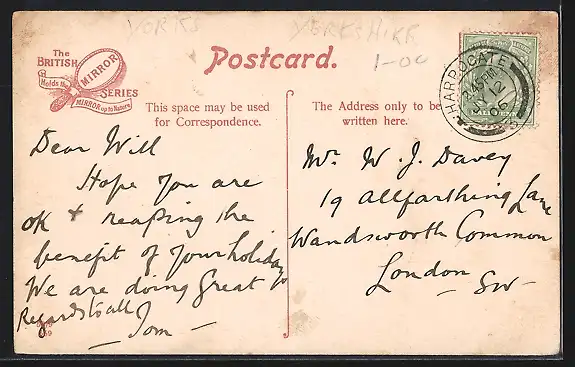 YORKS
YORKSHIRE
1-00
The
BRITISH
MIRROR
SERIES
Holds the
MIRROR up to Nature
Postcard.
This space may be used
for Correspondence.
The Address only to be
written here.
HARROGATE
2.45 PM
12
06
Dear Will
Hope you are
OK + reaping the
benefit of your holiday
We are doing great
Regards to all
Tom
Mr. W. J. Davey
19 Allfarthing Lane
Wandsworth Common
London
SW